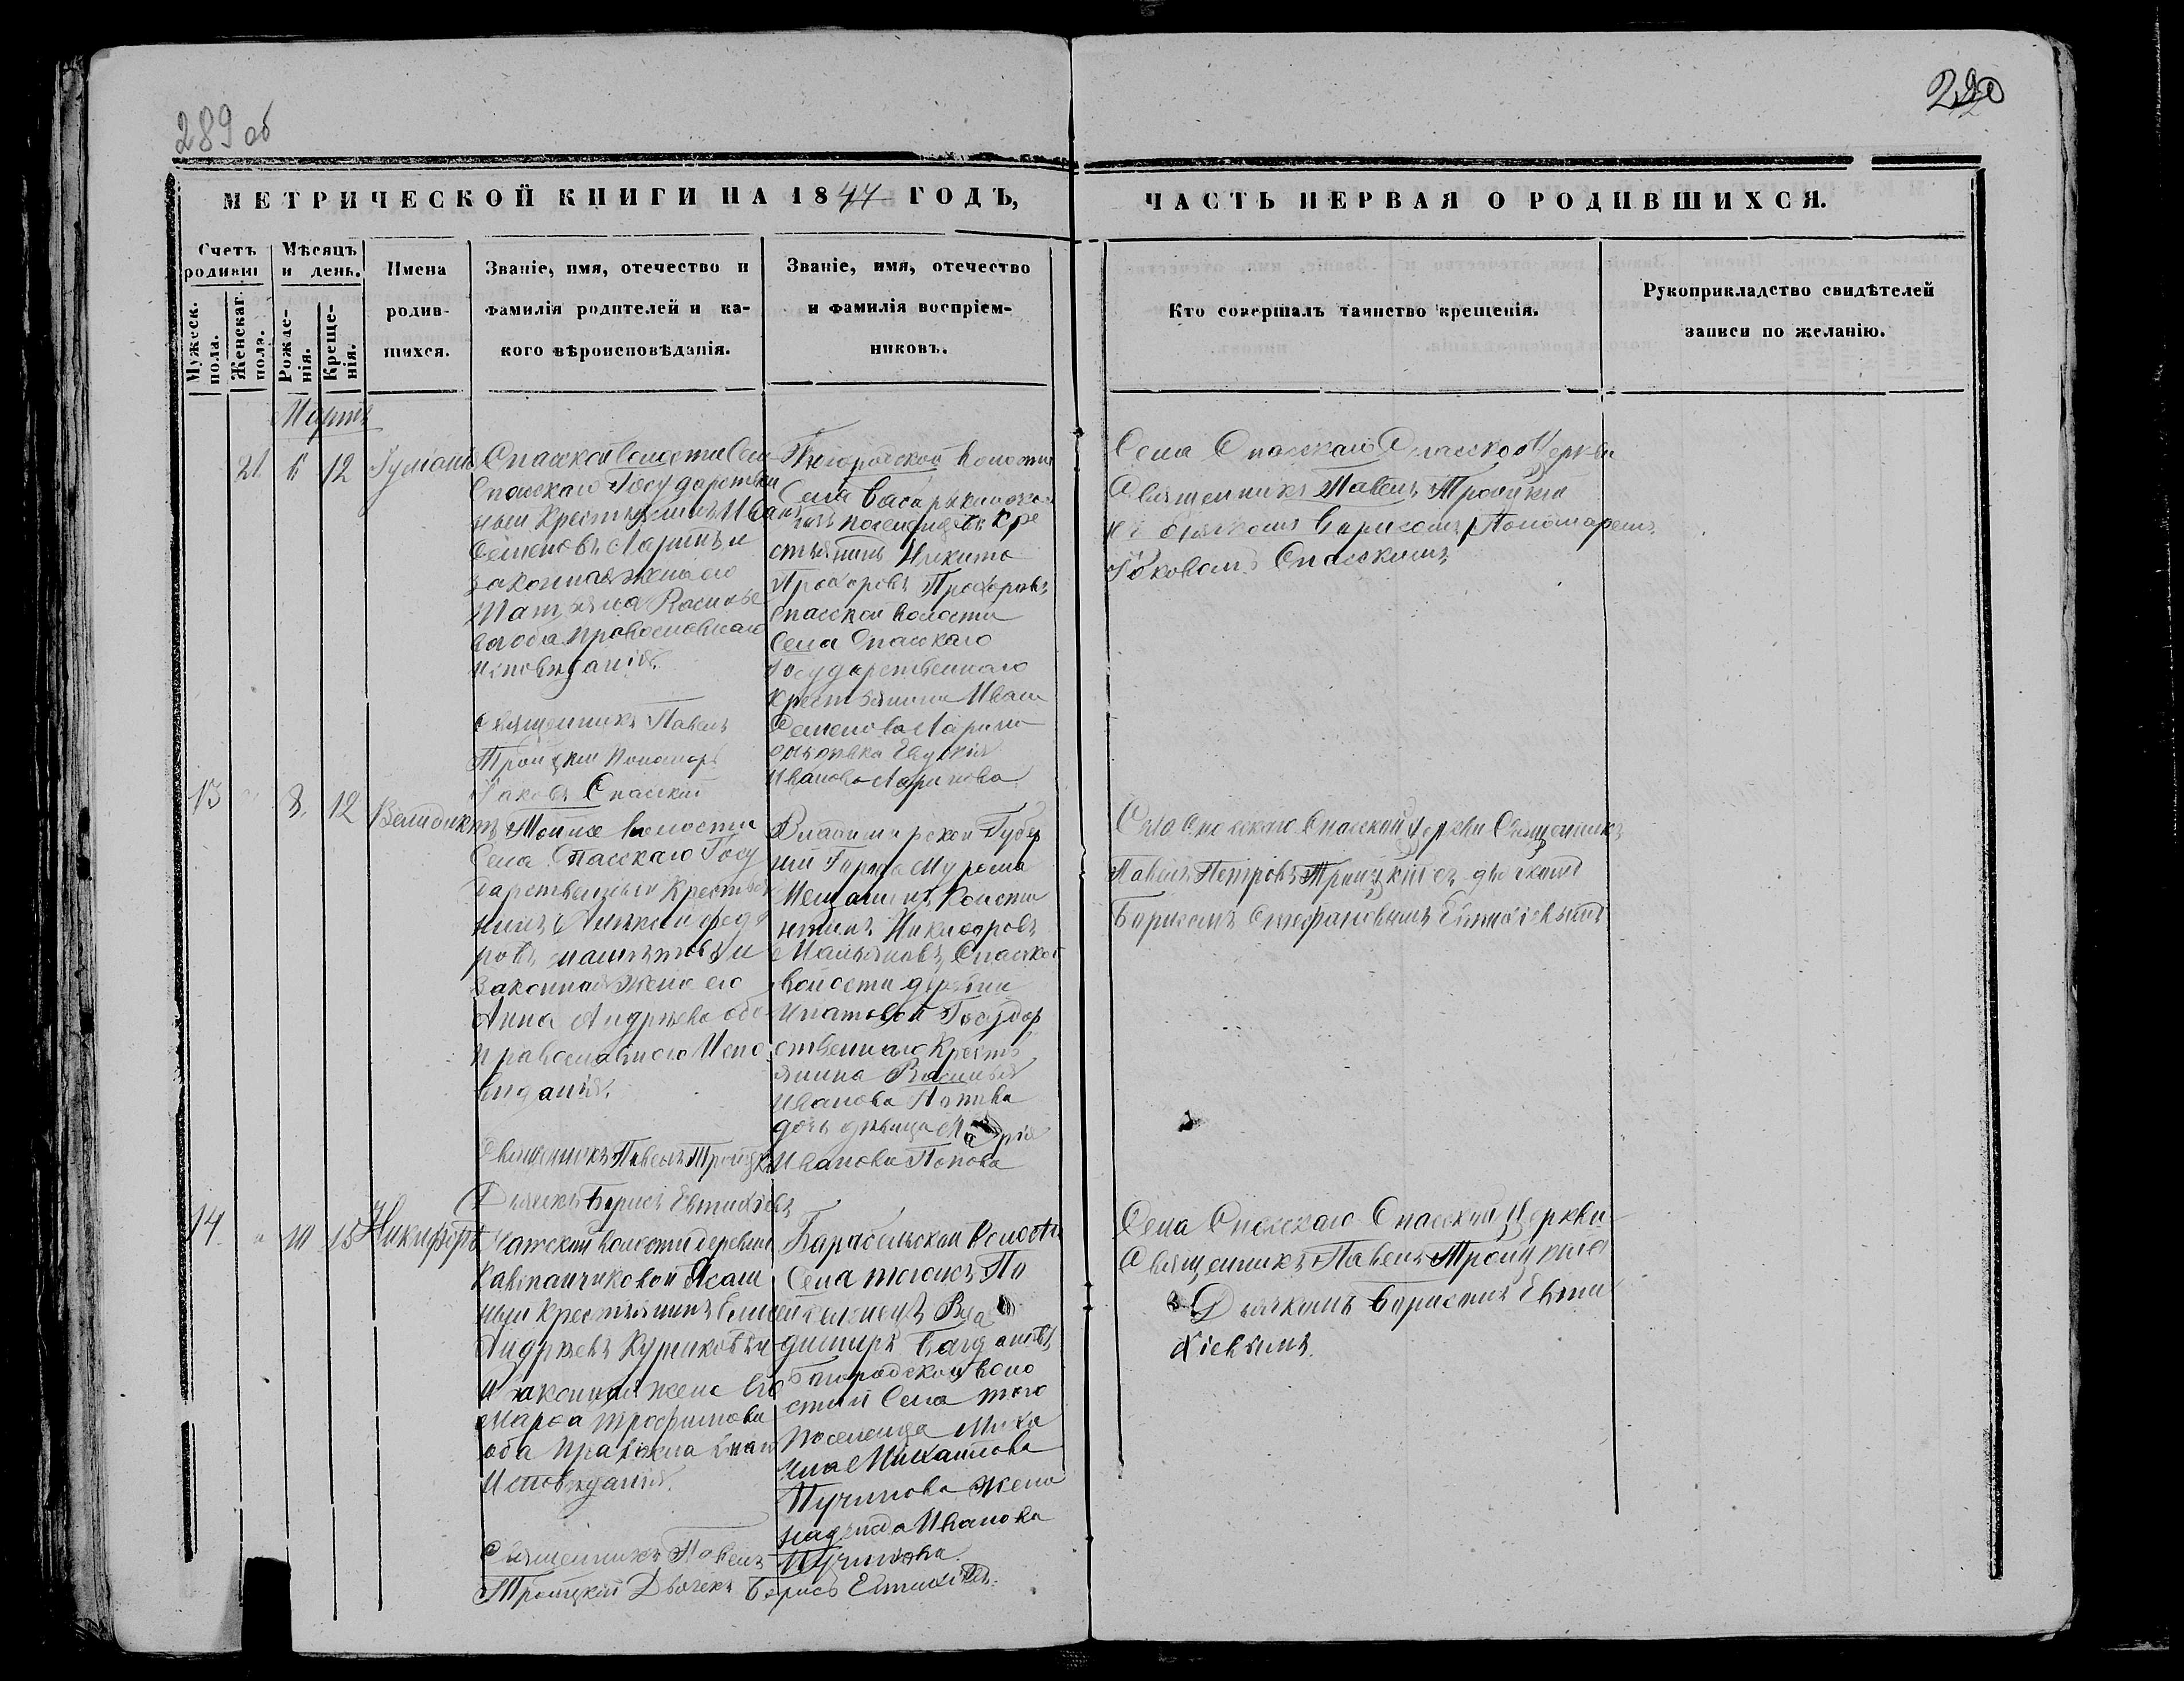 289 об
290
МЕТРИЧЕСКОЙ КНИГИ НА 1844 ГОДЪ,
ЧАСТЬ ПЕРВАЯ О РОДИВШИХСЯ.
Счетъ родивш
Мужеск. пола.
Женскаг. пола.
Мѣсяцъ и день.
Рожде-нія.
Креще-нія.
Имена
родив-
шихся.
Званіе, имя, отечество и
фамилія родителей и ка-
кого вѣроисповѣданія.
Званіе, имя, отечество
и фамилія воспріем-
никовъ.
Кто совершалъ таинство крещенія.
Рукоприкладство свидѣтелей
записи по желанію.
Мартъ
21. 6 12
Спасской волости Села
Спаскаго Государствен
ный Крестьянинъ Иванъ
Семеновъ Ларинъ и
законная жена его
Татьяна Василье
ва оба православнаго
исповѣданія.
Священникъ Павелъ
Троицкій Пономарь
Іаковъ Спасскій
волости
Села
Кре
стьянинъ Никита
Прохоровъ Прохоровъ
Спасской волости
Села Спаскаго
Государственнаго
Крестьянина Ивана
Семенова Ларина
Ивановна Ларинова
Села Спасскаго Спасской Церкви
Священникъ Павелъ Троицкій
съ дьячкомъ Борисомъ Пономаремъ
Іаковомъ Спасскимъ
13 " 8. 12 Венидиктъ
Тойже волости
Села Спасскаго Госу
дарственный Крестья
нинъ Федо
ровъ и
законная жена его
Анна Андреева оба
православнаго Испо
виданія.
Священникъ Павелъ Троицкій
Дьячекъ Борисъ Евтихіевъ
Владимирской Губер
ніи Города Мурома
Мещанинъ Конста
нтинъ Никифоровъ
Спасской
волости деревни
Ипатовой Государ
ственнаго Кресть
янина Василья
Иванова Попова
дочь дѣвица Марія
Иванова Попова
Села Спасскаго Спасской Церкви Священникъ
Павелъ Петровъ Троицкій съ дьячкомъ
Борисомъ Стефановымъ Евтихіевымъ
14 " 10 15 Никифоръ
Чатской волости деревни
Кавтанчиковой Ясаш
ный крестьянинъ
Андреевъ Куриковъ
и законная жена Его
Марфа Трофимова
оба православнаго
Исповѣданія.
Священникъ Павелъ
Троицкій Дьячекъ Борисъ Евтихіевъ.
Парабельской волости
Села тогоже По
селенецъ Вла
димиръ Багдановъ
Богородской воло
сти Села того
поселенца Миха
ила Михайлова
Пучинова жена
Иванова
Пучинова.
Села Спасскаго Спасской Церкви
Священникъ Павелъ Троицкій
съ Дьячкомъ Борисомъ Евти
хіевымъ.